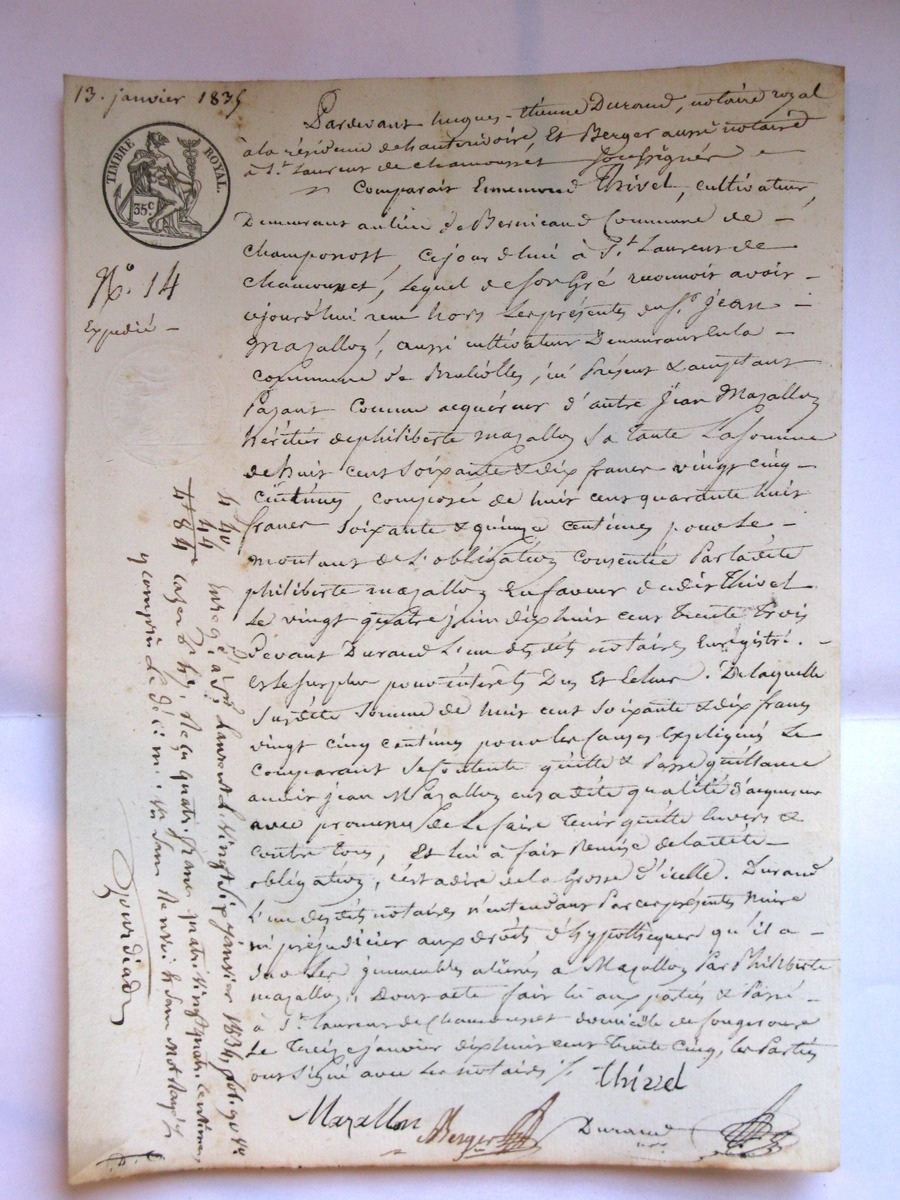 13. janvier 1835
TIMBRE ROYAL.
35c
N.o 14
Expedié –
Pardevant hugues-Etienne Durand, notaire royal
à la résidence de hauterivoire, Et Berger aussi notaire
à St. Laurent de chamousset soussignés
Comparait Ennemond Thivel, cultivateur
Demeurant au lieu de Commune de –
Champonost, cejourdhui à St. Laurent de
chamousset, lequel de son Gré reconnoit avoir –
ajourd'hui reçu hors les présentes du Sr. Jean –
Mazallon, aussi cultivateur Demeurant en la –
commune de Brullolles, ici Présent & acceptant
Payant Comme acquéreur d'autre Jean Mazallon
héritier de philiberte mazallon Sa tante La Somme
de huit cent Soixante & dix francs vingt cinq –
centimes composée de huit cent quarante huit
francs Soixante & quinze centimes pour Le –
montant de L'obligation consentie Par ladite
philiberte mazallon En faveur dudit Thivel
Le vingt quatre juin dix huit cent trente trois
Devant Durand L'un desdits notaires Enregistré. –
Et le surplus pour intérets Dus Et échus. De laquelle
Susdite Somme de huit cent Soixante & dix francs
vingt cinq centimes pour les causes Expliquées Le
comparant Se contente quitte & Passe quittance
audit jean Mazallon en sadite qualité d'acquereur
avec promesse de Le faire tenir quitte Envers &
contre tous, Et lui à fait Remise de ladite –
obligation, c'est adire de la Grosse d'icelle. Durand
L'un desdits notaires n'entendant Par ces présentes Nuire
ni préjudicier aux droits d'hypotheques qu'il a –
sur Les immeubles aliénés à Mazallon Par Philiberte
mazallon. Dont acte fait lu aux parties & Passé –
à St. Laurent de Chamousset domicile de
Le Treize janvier dix huit cent trente cinq, les Parties
ont Signé avec Les notaires ./.
Thivel
Mazallon
Berger
Durand
4 40
44
4 84
Enregé à St. Laurent le vingt janvier 1835, fol. 90
case Reçu quatre francs quatre vingt quatre centimes
y compris Le décime